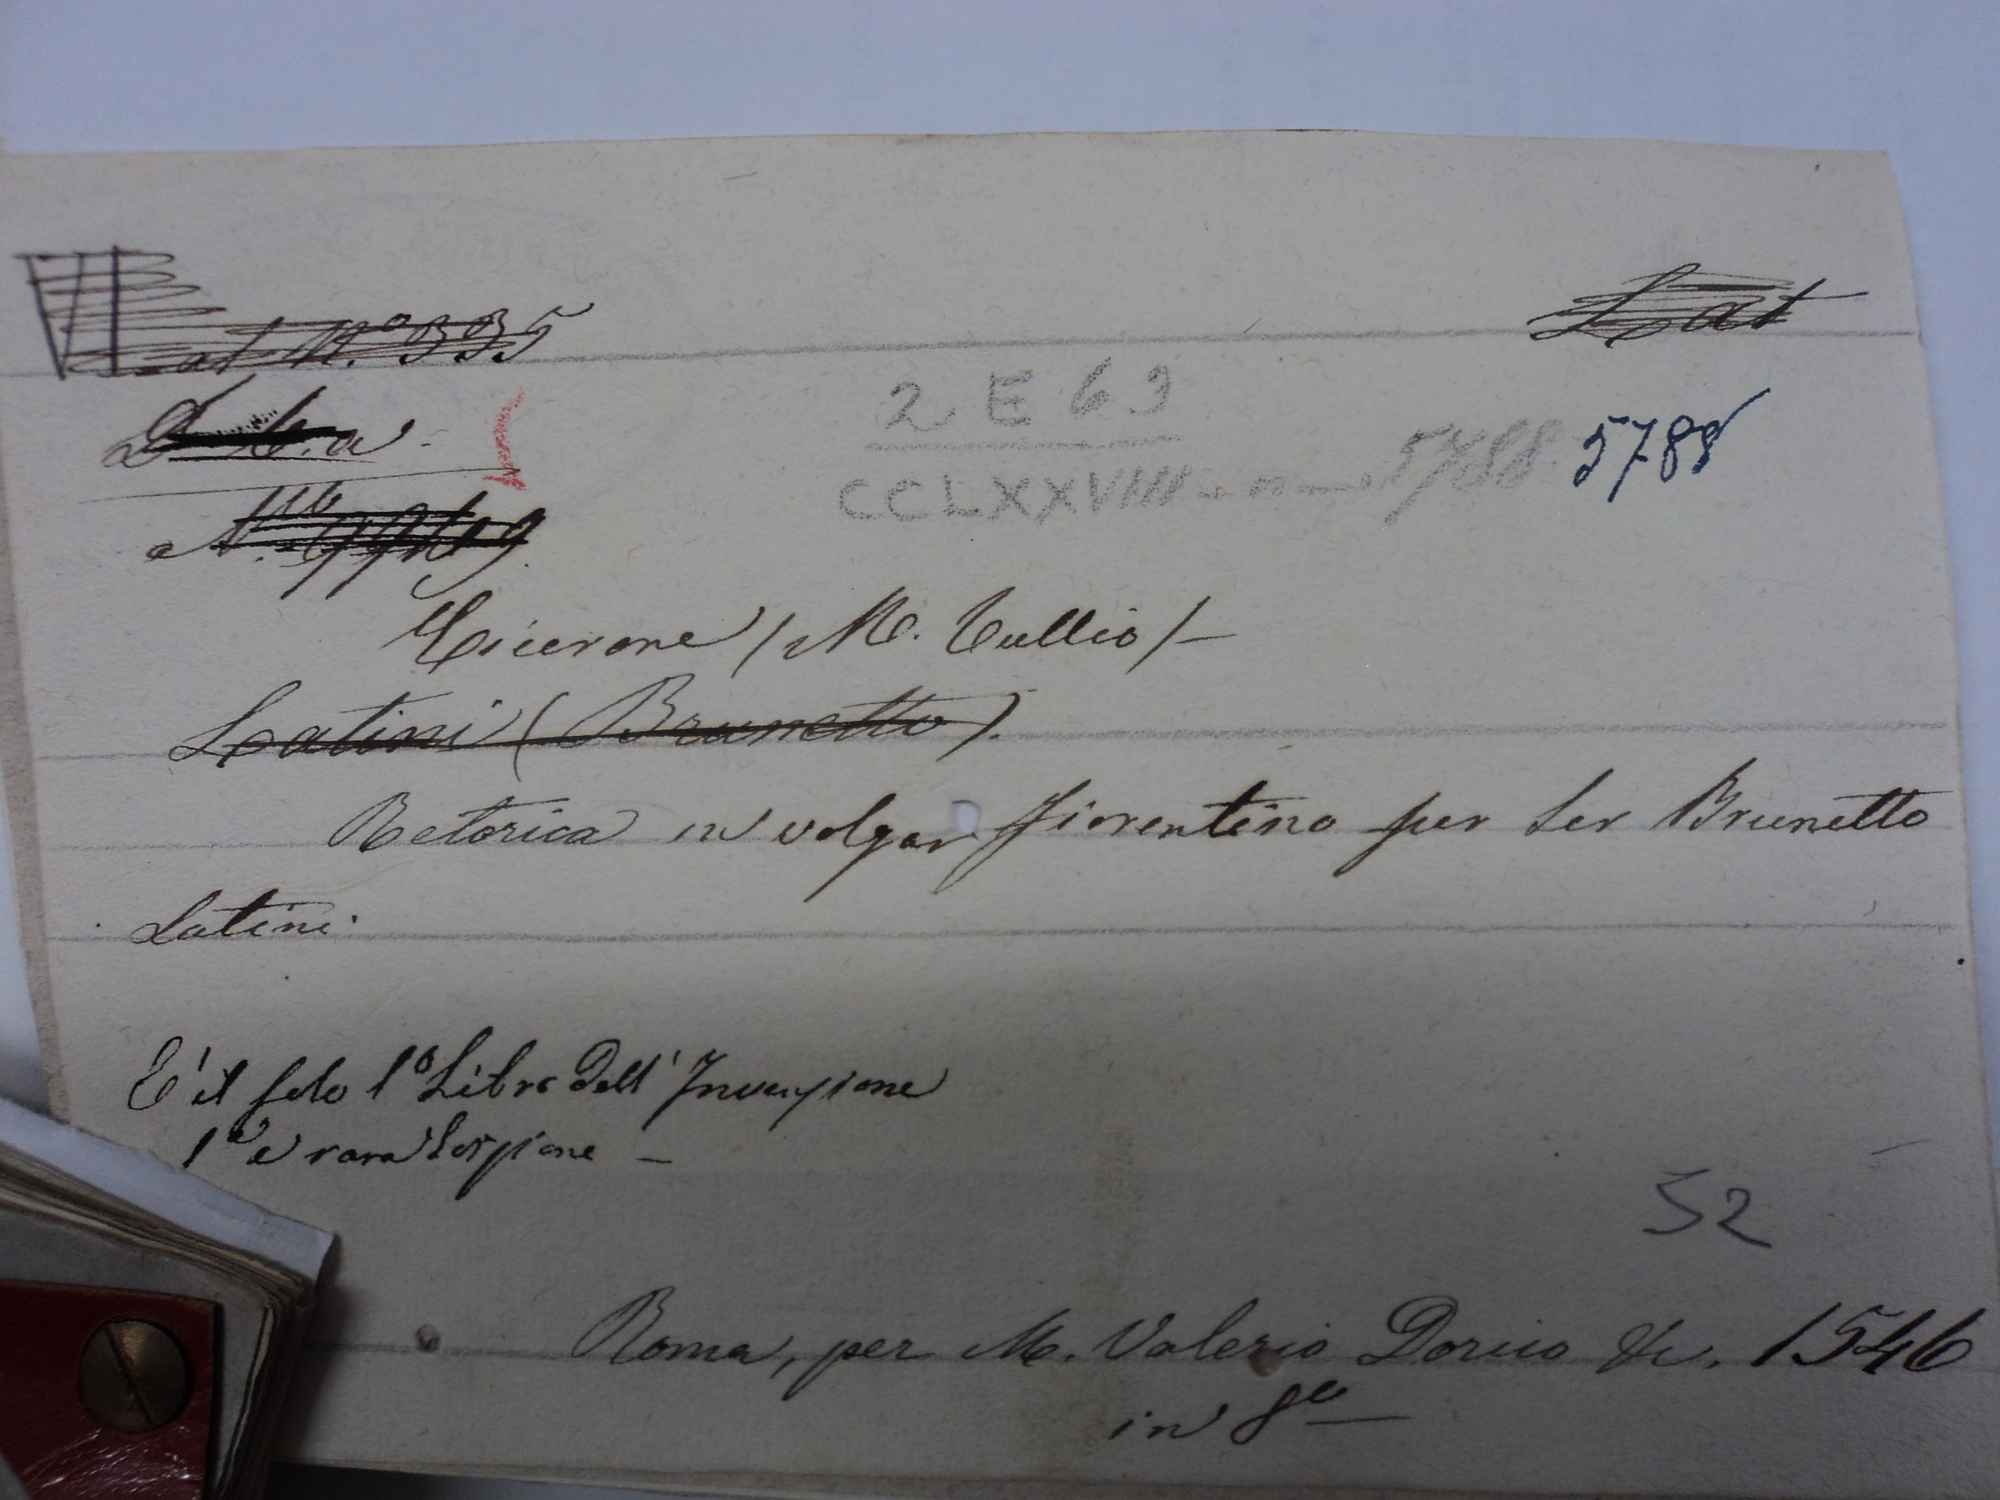 VI
Lat
Nº 335
2 E 63
CCLXXVIIII 5788 5788
Cicerone (M. Tullio) -
Latini (Brunetto).
Retorica in volgar fiorentino per Ser Brunetto
Latini.
E' il solo 1º Libro dell' Invenzione
1ª e rara Edizione -
52
Roma, per M. Valerio Dorico &c. 1546
in 8º